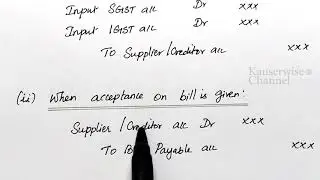 Input SGST a/c Dr xxx
Input IGST a/c Dr xxx
To Supplier/Creditor a/c xxx
Kauserwise®
Channel
(ii) When acceptance on bill is given:
Supplier/Creditor a/c Dr xxx
To Payable a/c xxx